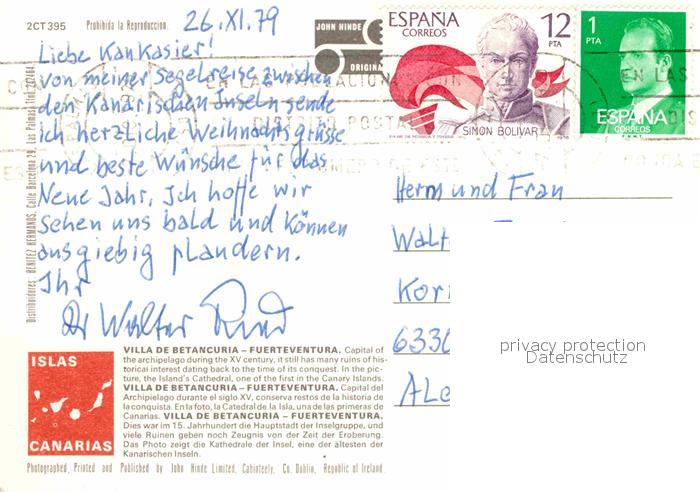 2CT395 Prohibida la Reproduccion. 26.XI.79
JOHN HINDE
ORIGINAL
ESPAÑA
CORREOS
12
PTA
SIMON BOLIVAR
1
PTA
ESPAÑA
CORREOS
Liebe Kaukasier!
von meiner Segelreise zwischen
den Kanarischen Inseln sende
ich herzliche Weihnachtsgrüsse
und beste Wünsche für das
Neue Jahr. Ich hoffe wir
sehen uns bald und können
ausgiebig plaudern.
Ihr
Dr Walter
Herrn und Frau
Walt
Kor
633
privacy protection
Datenschutz
Distribuidores: BENITEZ HERMANOS, Calle Barcelona 29, Las Palmas
ISLAS
CANARIAS
VILLA DE BETANCURIA – FUERTEVENTURA. Capital of
the archipelago during the XV century, it still has many ruins of his-
torical interest dating back to the time of its conquest. In the pic-
ture, the Island's Cathedral, one of the first in the Canary Islands.
VILLA DE BETANCURIA – FUERTEVENTURA. Capital del
Archipelago durante el siglo XV, conserva restos de la historia de
la conquista. En la foto, la Catedral de la Isla, una de las primeras de
Canarias. VILLA DE BETANCURIA – FUERTEVENTURA.
Dies war im 15. Jahrhundert die Hauptstadt der Inselgruppe, und
viele Ruinen geben noch Zeugnis von der Zeit der Eroberung.
Das Photo zeigt die Kathedrale der Insel, eine der ältesten der
Kanarischen Inseln.
Photographed, Printed and Published by John Hinde Limited, Cabinteely, Co. Dublin, Republic of Ireland.